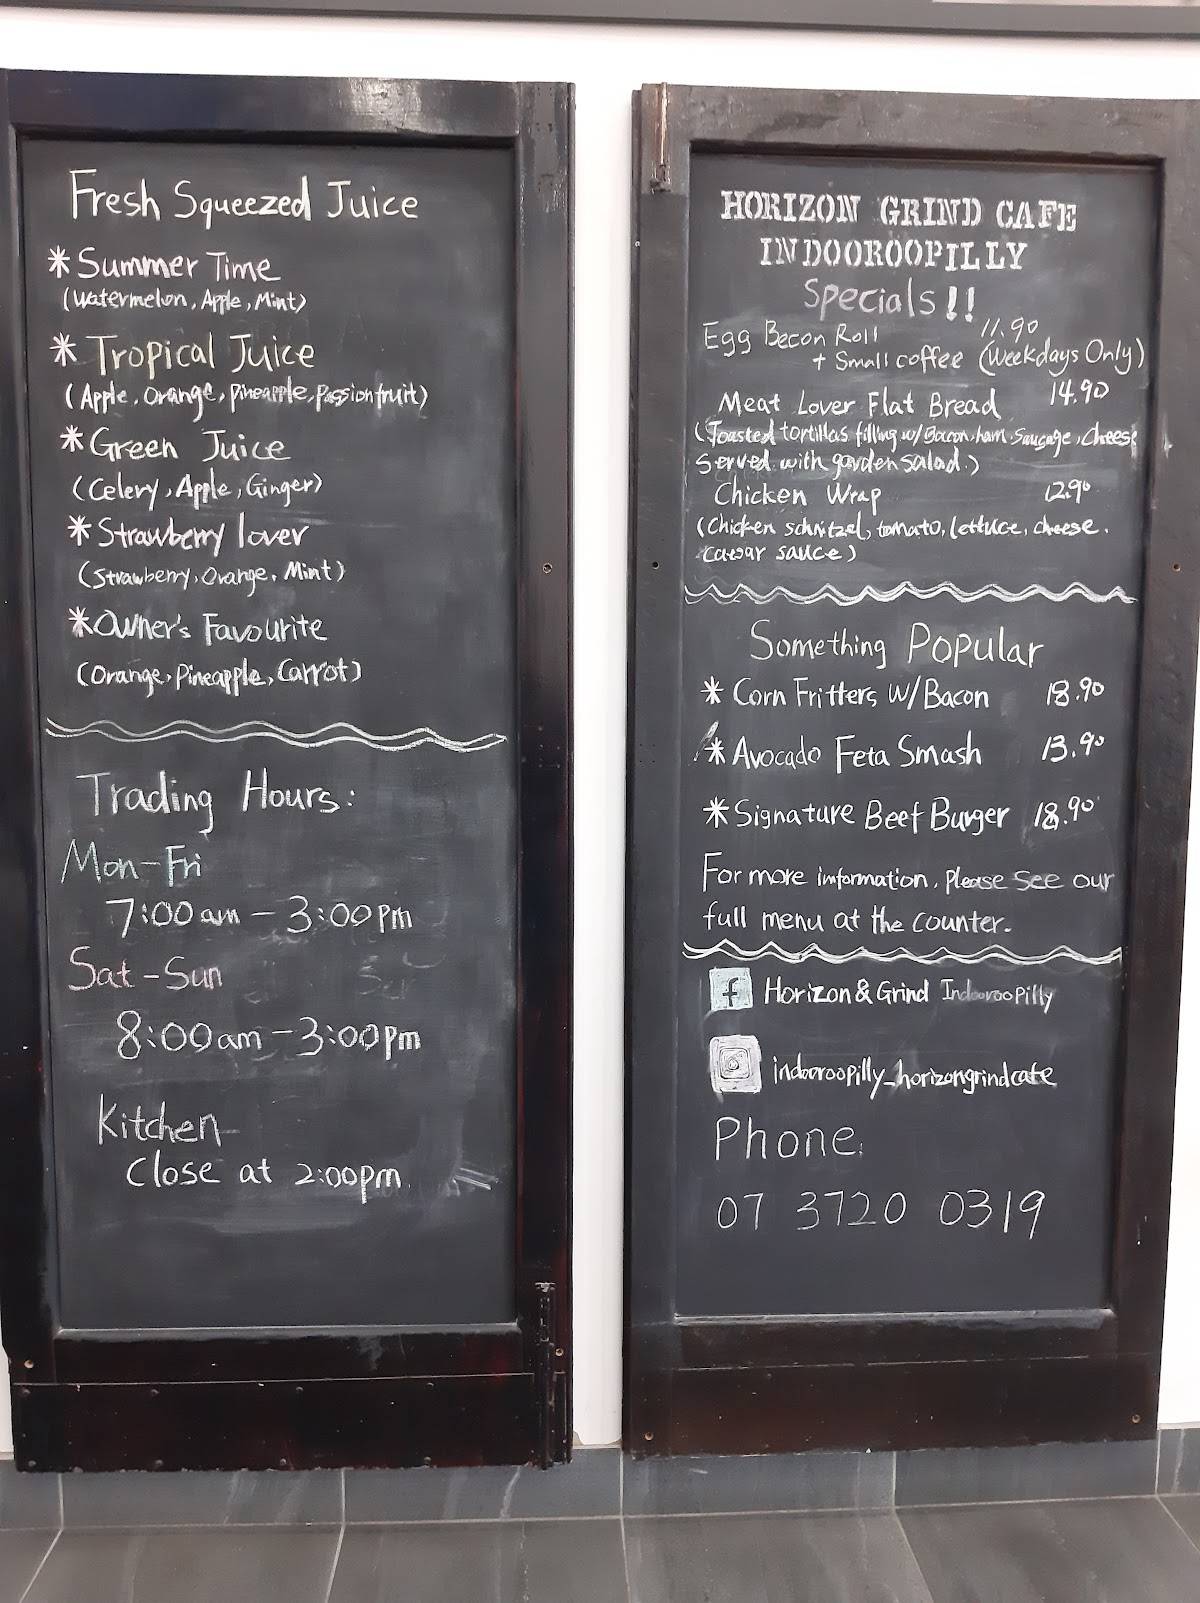 Fresh Squeezed Juice
* Summer Time
(Watermelon, Apple, Mint)
* Tropical Juice
(Apple, Orange, Pineapple, Passionfruit)
* Green Juice
(Celery, Apple, Ginger)
* Strawberry lover
(Strawberry, Orange, Mint)
* Owner's Favourite
(Orange, Pineapple, Carrot)
Trading Hours:
Mon-Fri
7:00am - 3:00pm
Sat-Sun
8:00am - 3:00pm
Kitchen
Close at 2:00pm
HORIZON GRIND CAFE
INDOOROOPILLY
Specials!!
Egg Becon Roll 11.90
+ Small coffee (Weekdays Only)
Meat Lover Flat Bread 14.90
(Toasted tortillas filling w/ Bacon, ham, Sausage, cheese
Served with garden salad.)
Chicken Wrap 12.90
(Chicken schnitzel, tomato, lettuce, cheese.
caesar sauce)
Something Popular
* Corn Fritters W/Bacon 18.90
* Avocado Feta Smash 13.90
* Signature Beef Burger 18.90
For more imformation, Please See our
full menu at the counter.
f Horizon&Grind Indooroopilly
indooroopilly_horizongrindcafe
Phone:
07 3720 0319